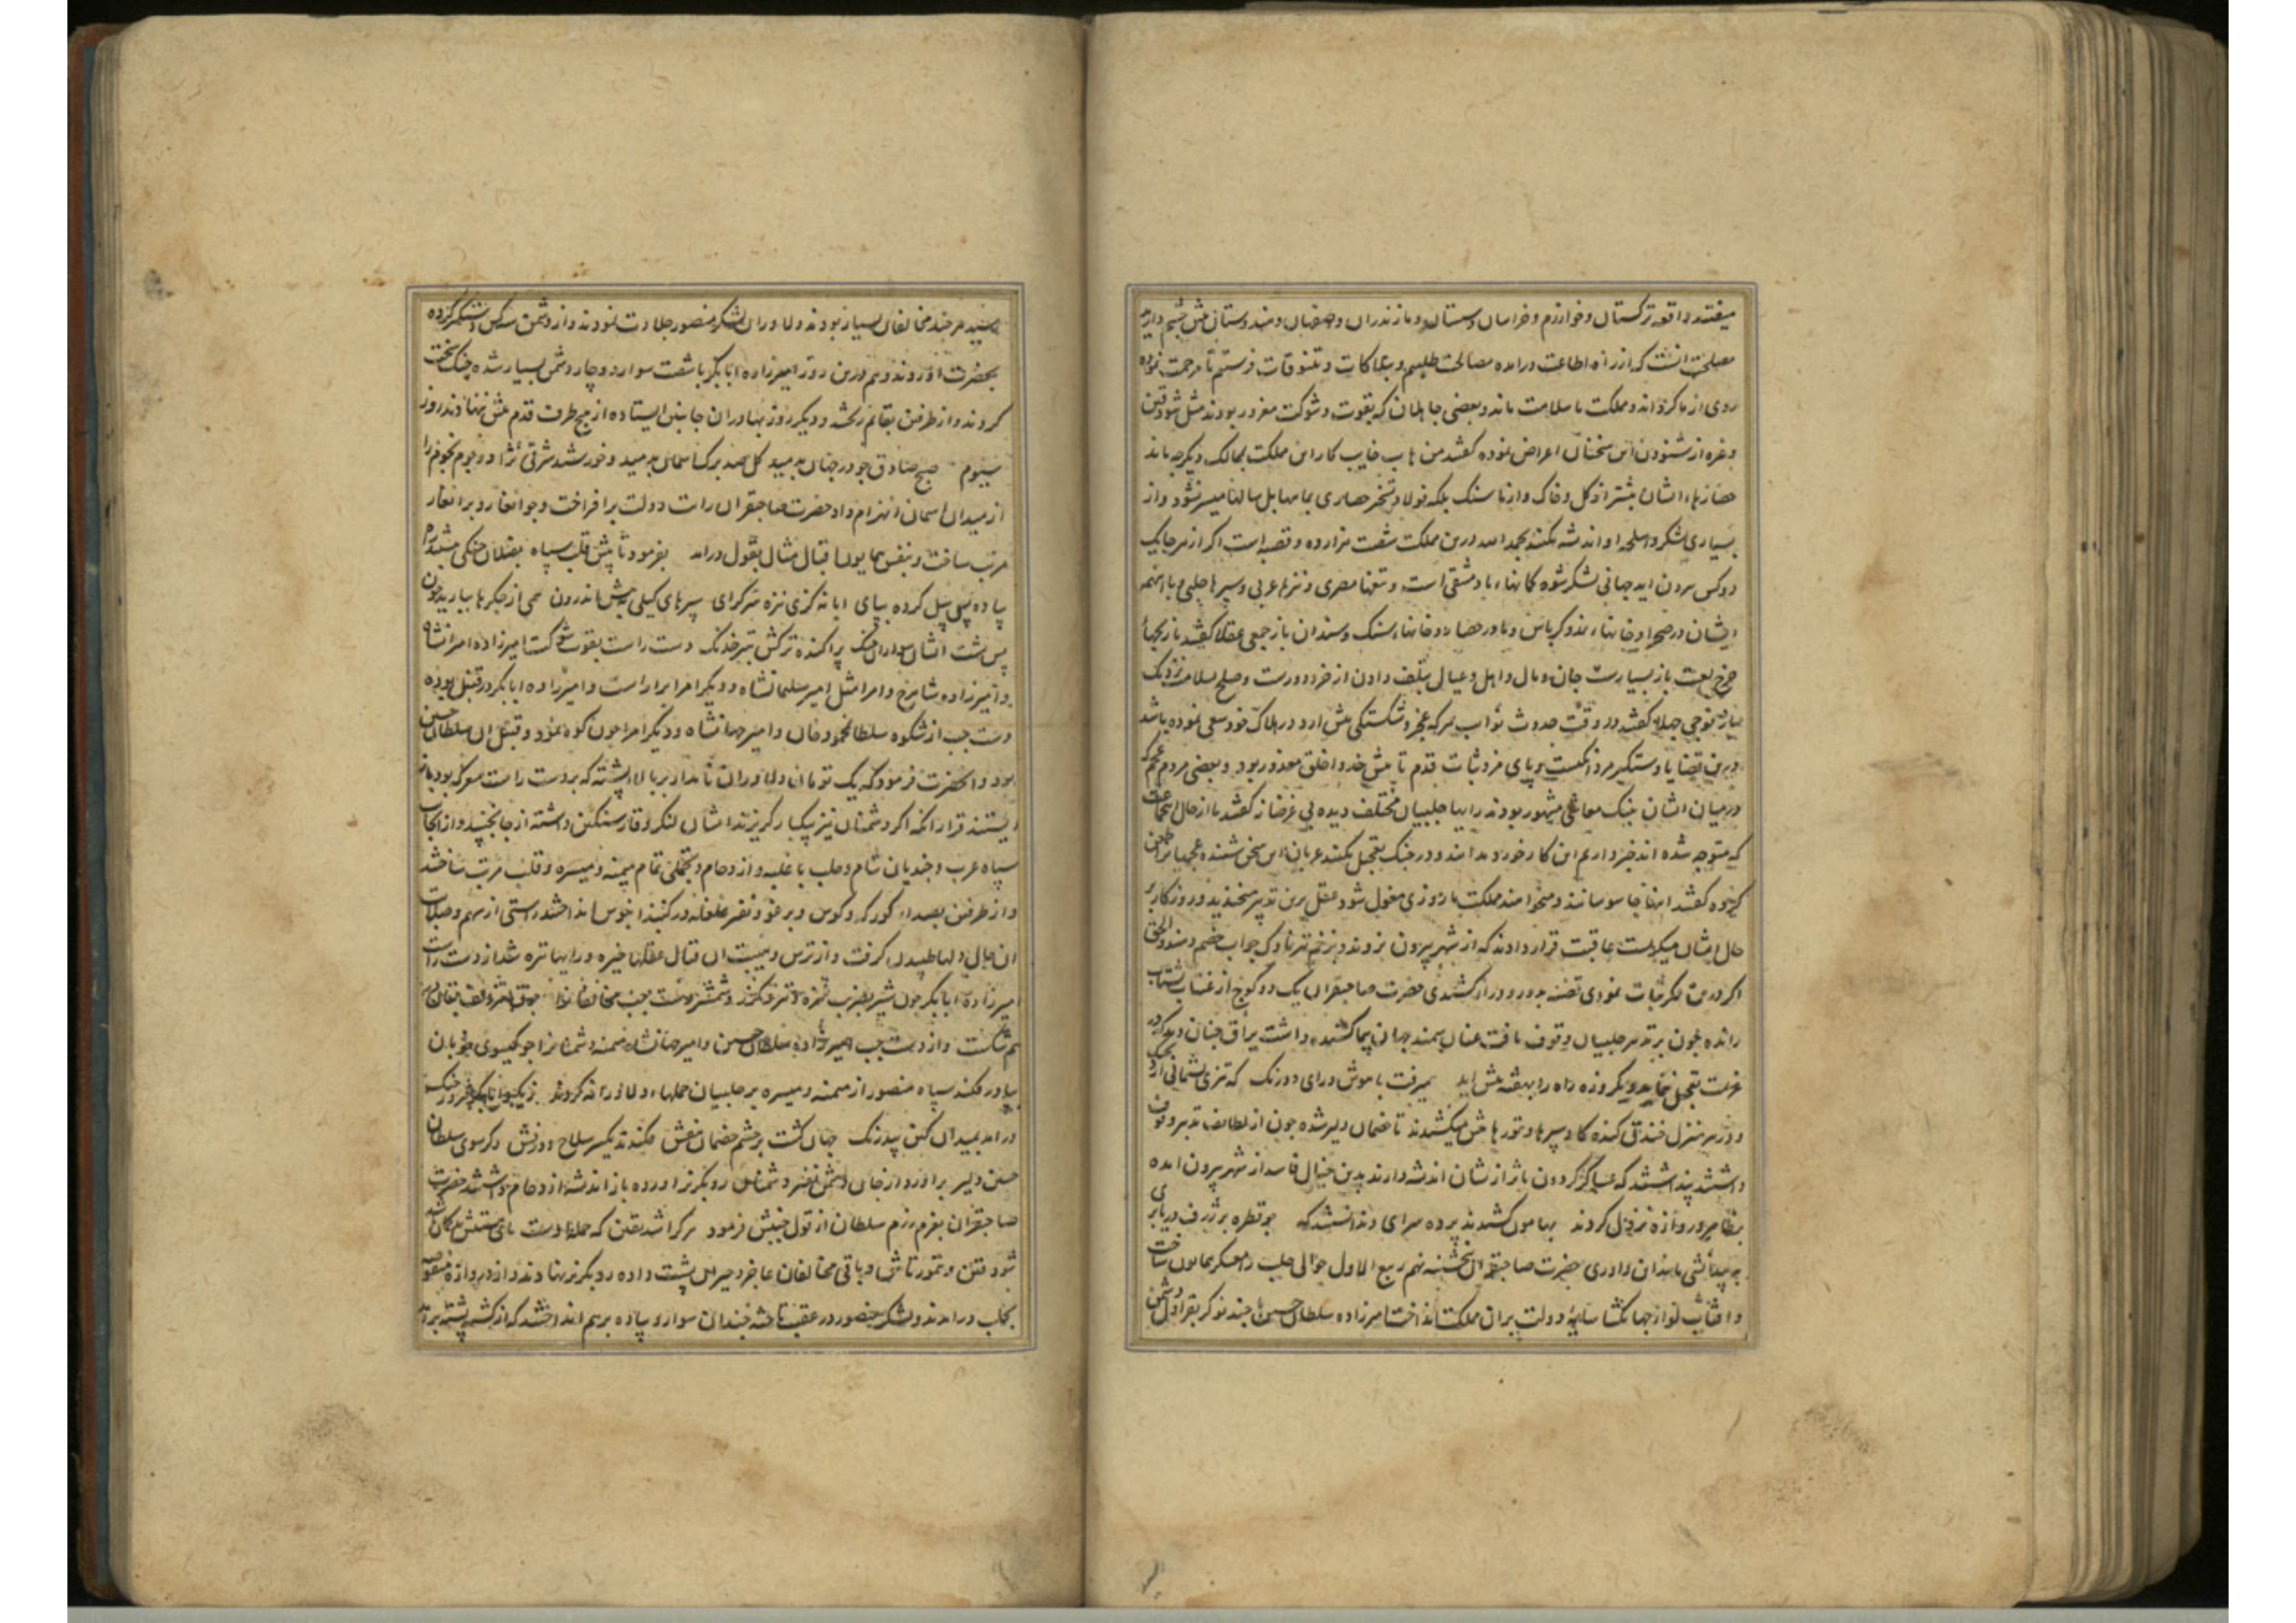 میفتند واقعه ترکستان و خوارزم و خراسان و سیستان و مازندران و اصفهان و هندوستان پیش چشم دارید
مصلحت آنست که از راه اطاعت درآمده مصالحت طلبیم و تنسوقات فرستیم تا مرحمت نموده
روی از ما گرداند و مملکت ما سلامت ماند و بعضی جاهلان که بقوت و شوکت مغرور بودند مثل شودون
و غیره از شنودن این سخنان اعراض نموده گفتند کار این مملکت بممالک دیگر چه ماند
حصارهاء ایشان بیشتر از گل و خاک و از ما سنگ بلکه فولاد و تسخیر حصاری بماهها بل سالها میسر نشود و از
بسیاری لشکر و اسلحه او اندیشه مکنید بحمد الله درین مملکت شصت هزار ده و قصبه است اگر از هر جا یک
دو کس بیرون آید جهانی لشکر شود کمانهاء ما دمشقی است و تیغها مصری و نیزها عربی و سپرها حلبی با اینهمه
ایشان در صحرا و خانهاء نمد و کرباس و ما در حصار و خانهاء سنگ و سندان باز جمعی عقلا گفتند بازیچهاء
چرخ لعبت باز بسیارست جان و مال و اهل و عیال بتلف دادن از خرد دورست و صلح بسلامت نزدیک
باز فوجی جهلا گفتند در وقت حدوث نوایب هر که عجز و شکستگی پیش آرد در هلاک خود سعی نموده باشد
درین قضایا دستگیر مردانگیست و پای مرد ثبات قدم تا پیش خدا و خلق معذور بود و بعضی مردم عجم که
در میان ایشان بنیک معاشی مشهور بودند رایها حلبیان مختلف دیده بی غرضانه گفتند ما از حال این جماعت
که متوجه شده اند خبر داریم این کار خورد مدانید و در جنگ تعجیل مکنید عربان این سخن شنیده عجمیانرا طعن
کرده گفتند اینها جاسوسانند و میخواهند مملکت ما روزی مغول شود عقل برین تدبیر میخندید و روزگار بر
حال ایشان میگریست عاقبت قرار دادند که از شهر بیرون روند و بزخم تیر ناوک جواب خصم دهند و الحق
اگر درین فکر ثبات نمودی قضیه بدور و دراز کشیدی حضرت صاحبقران یک دو کوچ از عنتاب شتاب
رانده چون بر تدبیر حلبیان وقوف یافت عنان سمند جهان پیما کشیده داشت یراق چنان دید که در
عزیمت تعجیل ننماید و یکروزه راه را بهفته پیش آید همیرفت با هوش و رای و درنگ که تیزی پشیمانی آرد بجنگ
و در هر منزل خندق کنده گاو سپرها و تورها پیش میکشیدند تا خصمان دلیر شده چون از لطایف تدبیر وقوف
داشتند پنداشتند که عساکر گردون مآثر از ایشان اندیشه دارند بدین خیال فاسد از شهر بیرون آمده
بظاهر دروازه نزول کردند بهامون کشیدند پرده سرای ندانستند که چو قطره بر ژرف دریا بری
به دیوانگی ماند این داوری حضرت صاحبقران پنجشنبه نهم ربیع الاول حوالی حلب را معسکر همایون ساخت
و آفتاب لواء جهانگشا سایه دولت بران مملکت انداخت امیرزاده سلطان حسین با چند نوکر بقراول دشمن
رسید هر چند مخالفان بسیار بودند دلاوران لشکر منصور جلادت نمودند و از دشمن یک کس دستگیر کرده
بحضرت آوردند و هم درین روز امیرزاده ابابکر با شصت سوار دوچار دشمن بسیار شده جنگ سخت
کردند و از طرفین بقایم ریخته و دیگر روز بهادران جانبین ایستاده از هیچ طرف قدم پیش ننهادند روز
سیوم صبح صادق چو در جهان بدمید گل صد برگ آسمان بدمید و خورشید شرقی نژاد هجوم نجوم را
از میدان آسمان انهزام داد حضرت صاحبقران رایت دولت برافراخت و جوانغار و برانغار
مرتب ساخت و بنفس همایون اقبال مثال بقول درآمد بفرمود تا پیش قلب سپاه به پیلان جنگی ببستند راه
پیاده پس پیل کرده بپای ابا نه گزی نیزه سر گرای سپرهای گیلی به پیش اندرون همی از جگرها ببارید خون
پس پشت ایشان سواران جنگ پراکنده ترکش ز تیر خدنگ دست راست بقوت شوکت امیرزاده امیرانشاه
و امیرزاده شاهرخ و امرا مثل امیر سلیمانشاه و دیگر امرا بیاراست و امیرزاده ابابکر در قنبل بوده
دست چپ از شکوه سلطان محمود خان و امیر جهانشاه و دیگر امرا چون کوه نمود و قنبل آن سلطان حسین
بود و آنحضرت فرمود که یک تومان دلاوران نامدار بر بالاء پشته که بر دست راست معرکه بود باز
ایستند قرار آنکه اگر دشمنان نیز بیکبار گریزند ایشان لنگر وقار سنگین داشته از جا نجنبند و از آنجانب
سپاه عرب و جندیان شام و حلب با غلبه و ازدحام و تجملی تمام میمنه و میسره و قلب مرتب ساختند
و از طرفین بصداء کورکه و کوس و برغو و نفیر غلغله در گنبد آبنوس انداختند راستی از سهم و صلابت
آن حال دلها طپیدن گرفت و از ترس و هیبت آن قتال عقلها خیره و رایها تیره شد از دست راست
امیرزاده ابابکر چون شیر بضرب نیزه و تیر و خنجر و شمشیر دست چپ مخالفانرا
هم شکست و از دست چپ امیرزاده سلطان حسین و امیر جهانشاه میمنه دشمنانرا چو گیسوی خوبان
بپا در فکند سپاه منصور از میمنه و میسره بر حلبیان حملهاء دلاورانه کردند
درآمد بمیدان کین بیدرنگ جهان گشت بر چشم خصمان بنفش فکندند یکسر سلاح و درفش دگر سوی سلطان
حسین دلیر برآورد از جان دشمن نفیر دشمنان روبگریز آورده باز اندیشه ازدحام داشتند حضرت
صاحبقران بعزم رزم سلطان از قول جنبش فرمود هر کرا شد یقین که حمله اوست پای هستیش در گمان باشد
شودون و تمورتاش و باقی مخالفان عاجز و حیران پشت داده رو بگریز نهادند و از دروازه منقوصه
بحلب درآمدند و لشکر منصور در عقب تاخته چندان سوار و پیاده بر هم انداختند که از کشته پشته برآمد